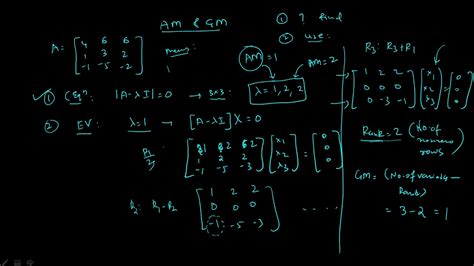 AM & GM
① ? find
② use:
A = [4 6 6
1 3 2
-1 -5 -2]
means:
AM = 1
AM = 2
① C Eqⁿ: |A-λI| = 0 → 3×3:
λ = 1, 2, 2
② EV: λ = 1 → [A-λI]X = 0
[2 2
1 2 2
-1 -5 -3] [x₁
x₂
x₃] = [0
0
0]
R₂: R₁-R₂ [1 2 2
0 0 0
-1 -5 -3] .....
R₃: R₃+R₁
[1 2 2
0 0 0
0 -3 -1] [x₁
x₂
x₃] = [0
0
0]
Rank = 2 (No. of nonzero rows)
GM = (No. of variables - Rank)
= 3-2 = 1